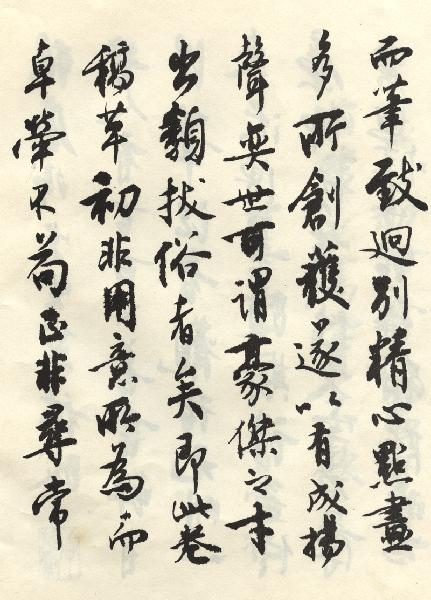 而筆致迥別精心點畫
多所創獲遂以有成揚
聲奕世可謂豪傑之才
出類拔俗者矣即此卷
稿草初非用意所為而
卓犖不苟正非尋常